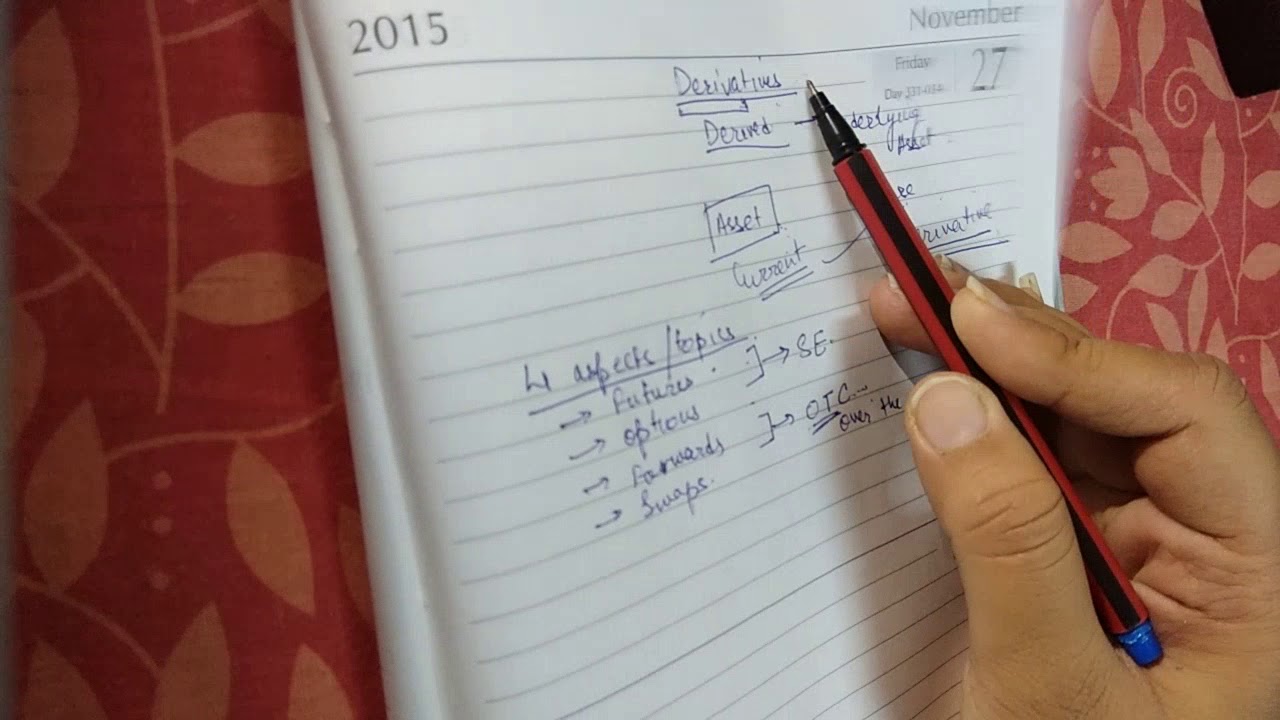 2015 November
Friday 27
Derivatives
Derived → derlying
Asset
Asset
Current rivative
4 aspects/topics
→ Futures ] → SE.
→ options
→ Forwards ] → OTC...
over the
→ Swaps.